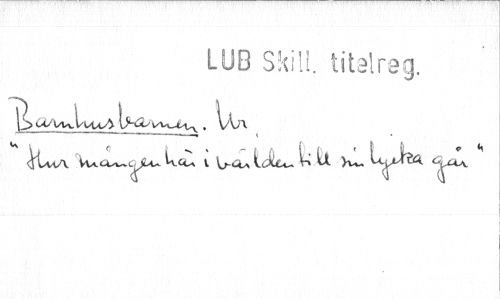 LUB Skill. titelreg.
Barnhusbarnen. Ur
"Hur mången här i världen till sin lycka går"